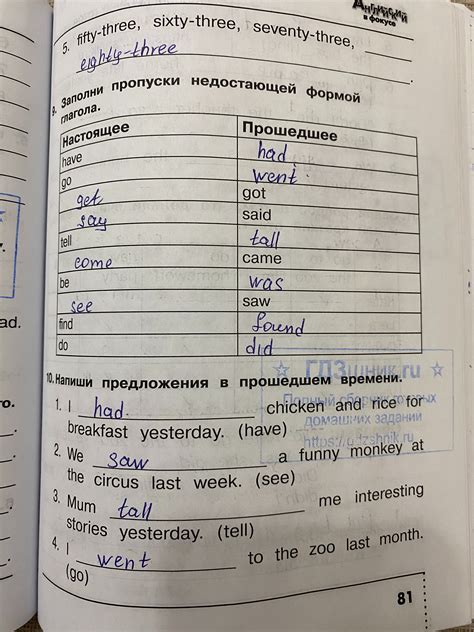 Английский
в фокусе
5. fifty-three, sixty-three, seventy-three,
eighty-three
9. Заполни пропуски недостающей формой
глагола.
Настоящее Прошедшее
have had
go went
get got
say said
tell tall
come came
be was
see saw
find found
do did
ad.
го.
☆ ГДЗшник.ru ☆
Полный сборник готовых
домашних заданий
https://gdzshnik.ru
10. Напиши предложения в прошедшем времени.
1. I had chicken and rice for
breakfast yesterday. (have)
2. We saw a funny monkey at
the circus last week. (see)
3. Mum tall me interesting
stories yesterday. (tell)
4. I went to the zoo last month.
(go)
81